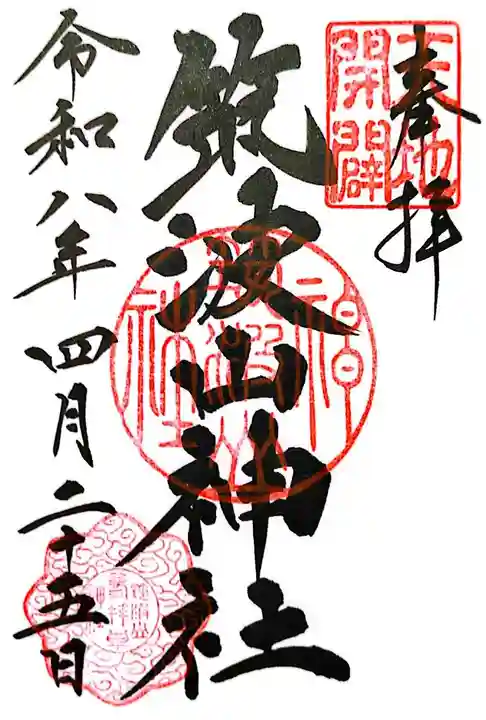 奉拝
天地開闢
筑波山神社
令和八年四月二十五日